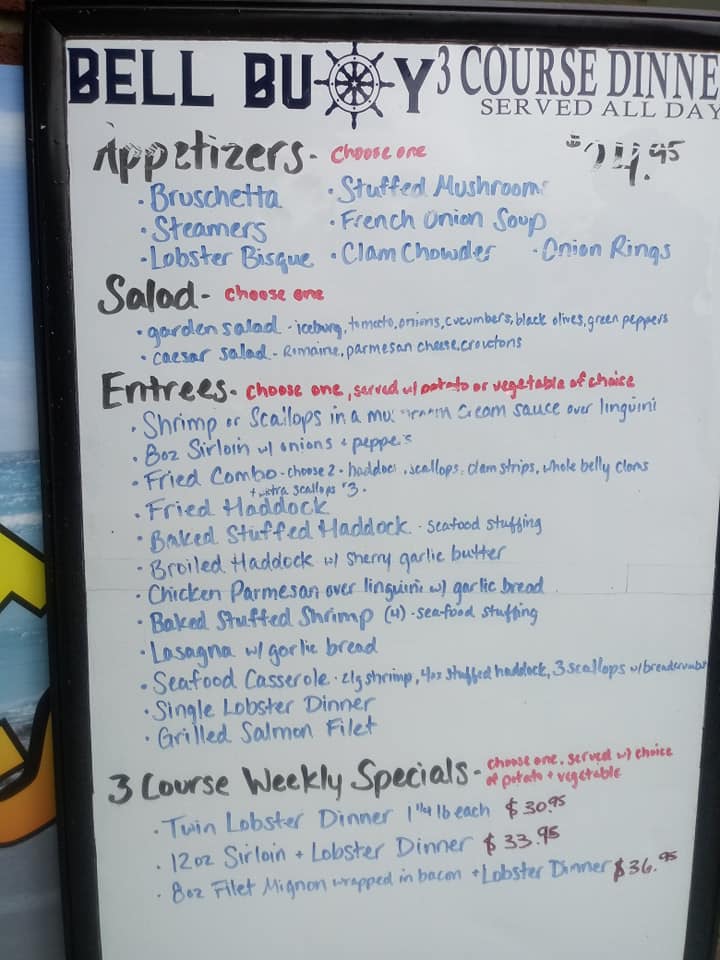 BELL BUOY 3 COURSE DINNE
SERVED ALL DAY
Appetizers - choose one $24.95
• Bruschetta • Stuffed Mushrooms
• Steamers • French Onion Soup
• Lobster Bisque • Clam Chowder • Onion Rings
Salad - choose one
• garden salad - iceburg, tomato, onions, cucumbers, black olives, green peppers
• caesar salad - Romaine, parmesan cheese, croutons
Entrees - choose one, served w/ potato or vegetable of choice
• Shrimp or Scallops in a cream sauce over linguini
• 8oz Sirloin w/ onions + peppers
• Fried Combo - choose 2 - haddock, scallops, clam strips, whole belly clams
+ extra scallops $3.
• Fried Haddock
• Baked Stuffed Haddock - seafood stuffing
• Broiled Haddock w/ sherry garlic butter
• Chicken Parmesan over linguini w/ garlic bread
• Baked Stuffed Shrimp (4) - seafood stuffing
• Lasagna w/ garlic bread
• Seafood Casserole - 2lg shrimp, 4oz stuffed haddock, 3 scallops w/ breadcrumbs
• Single Lobster Dinner
• Grilled Salmon Filet
3 Course Weekly Specials - choose one, served w/ choice
of potato + vegetable
• Twin Lobster Dinner 1 1/4 lb each $30.95
• 12oz Sirloin + Lobster Dinner $33.95
• 8oz Filet Mignon wrapped in bacon + Lobster Dinner $36.95